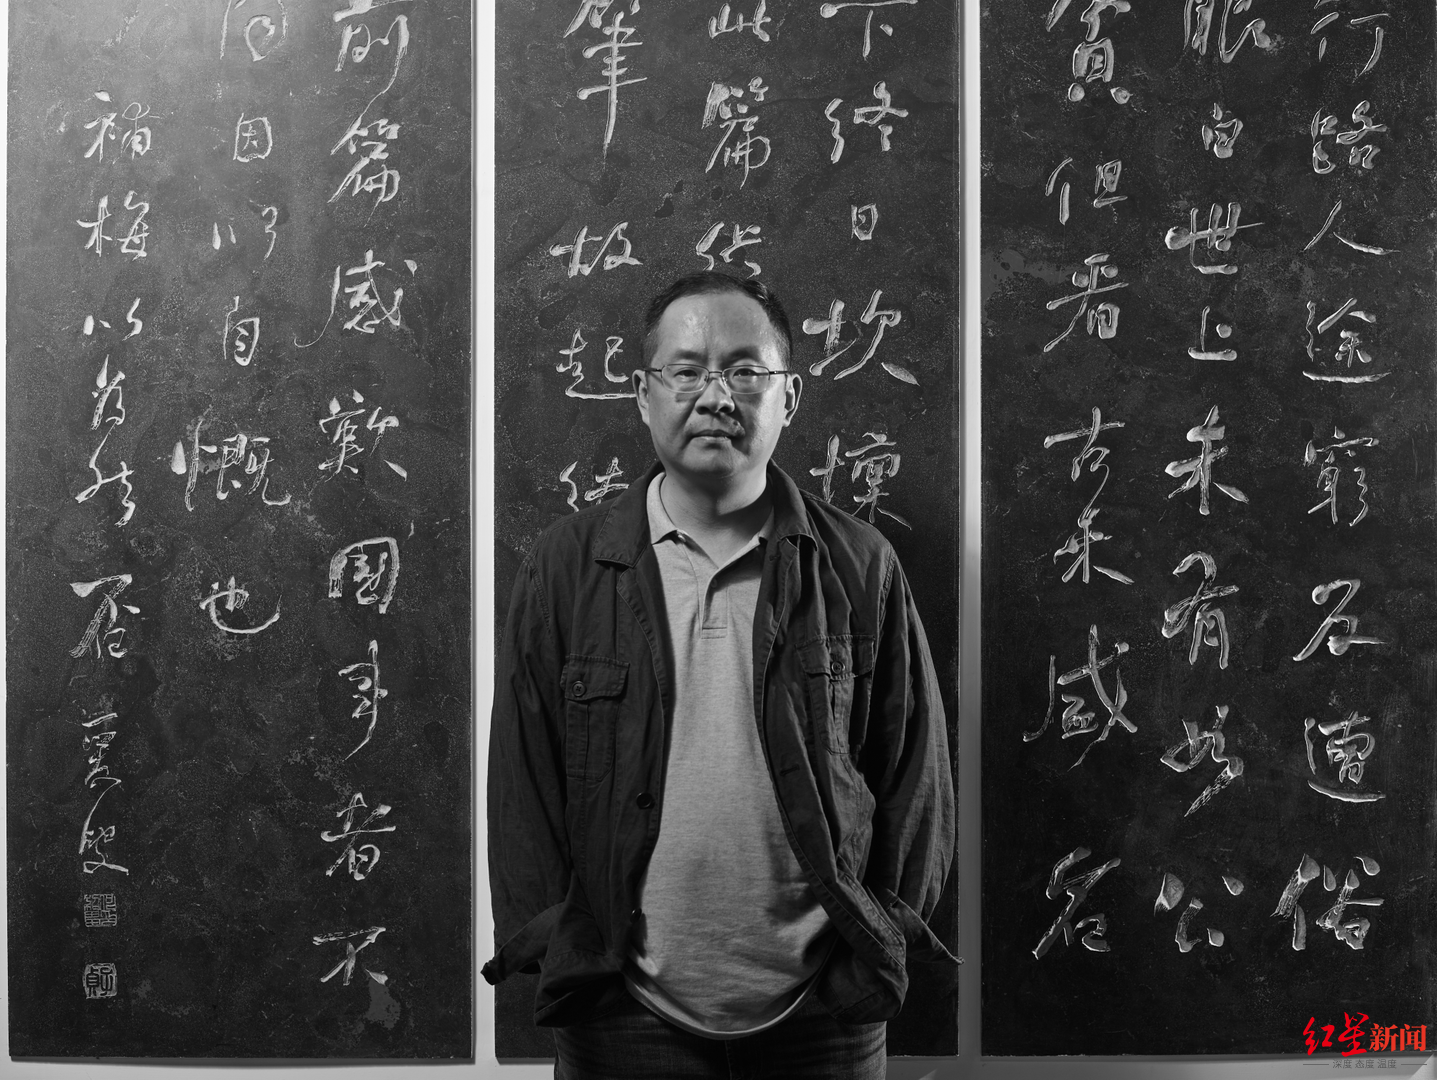 行路人途窮反遭俗
眼白世上未有如公
貧但看古來盛名
下終日坎壈
此篇
筆故起結
前篇感歎國事者不
同因以自慨也
補梅以為然否
子貞
红星新闻
深度 态度 温度